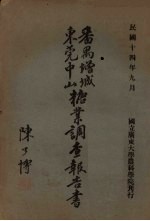 民國十四年九月
番禺增城
東莞中山
糖業調查報告書
國立廣東大學農科學院刊行
陳
博